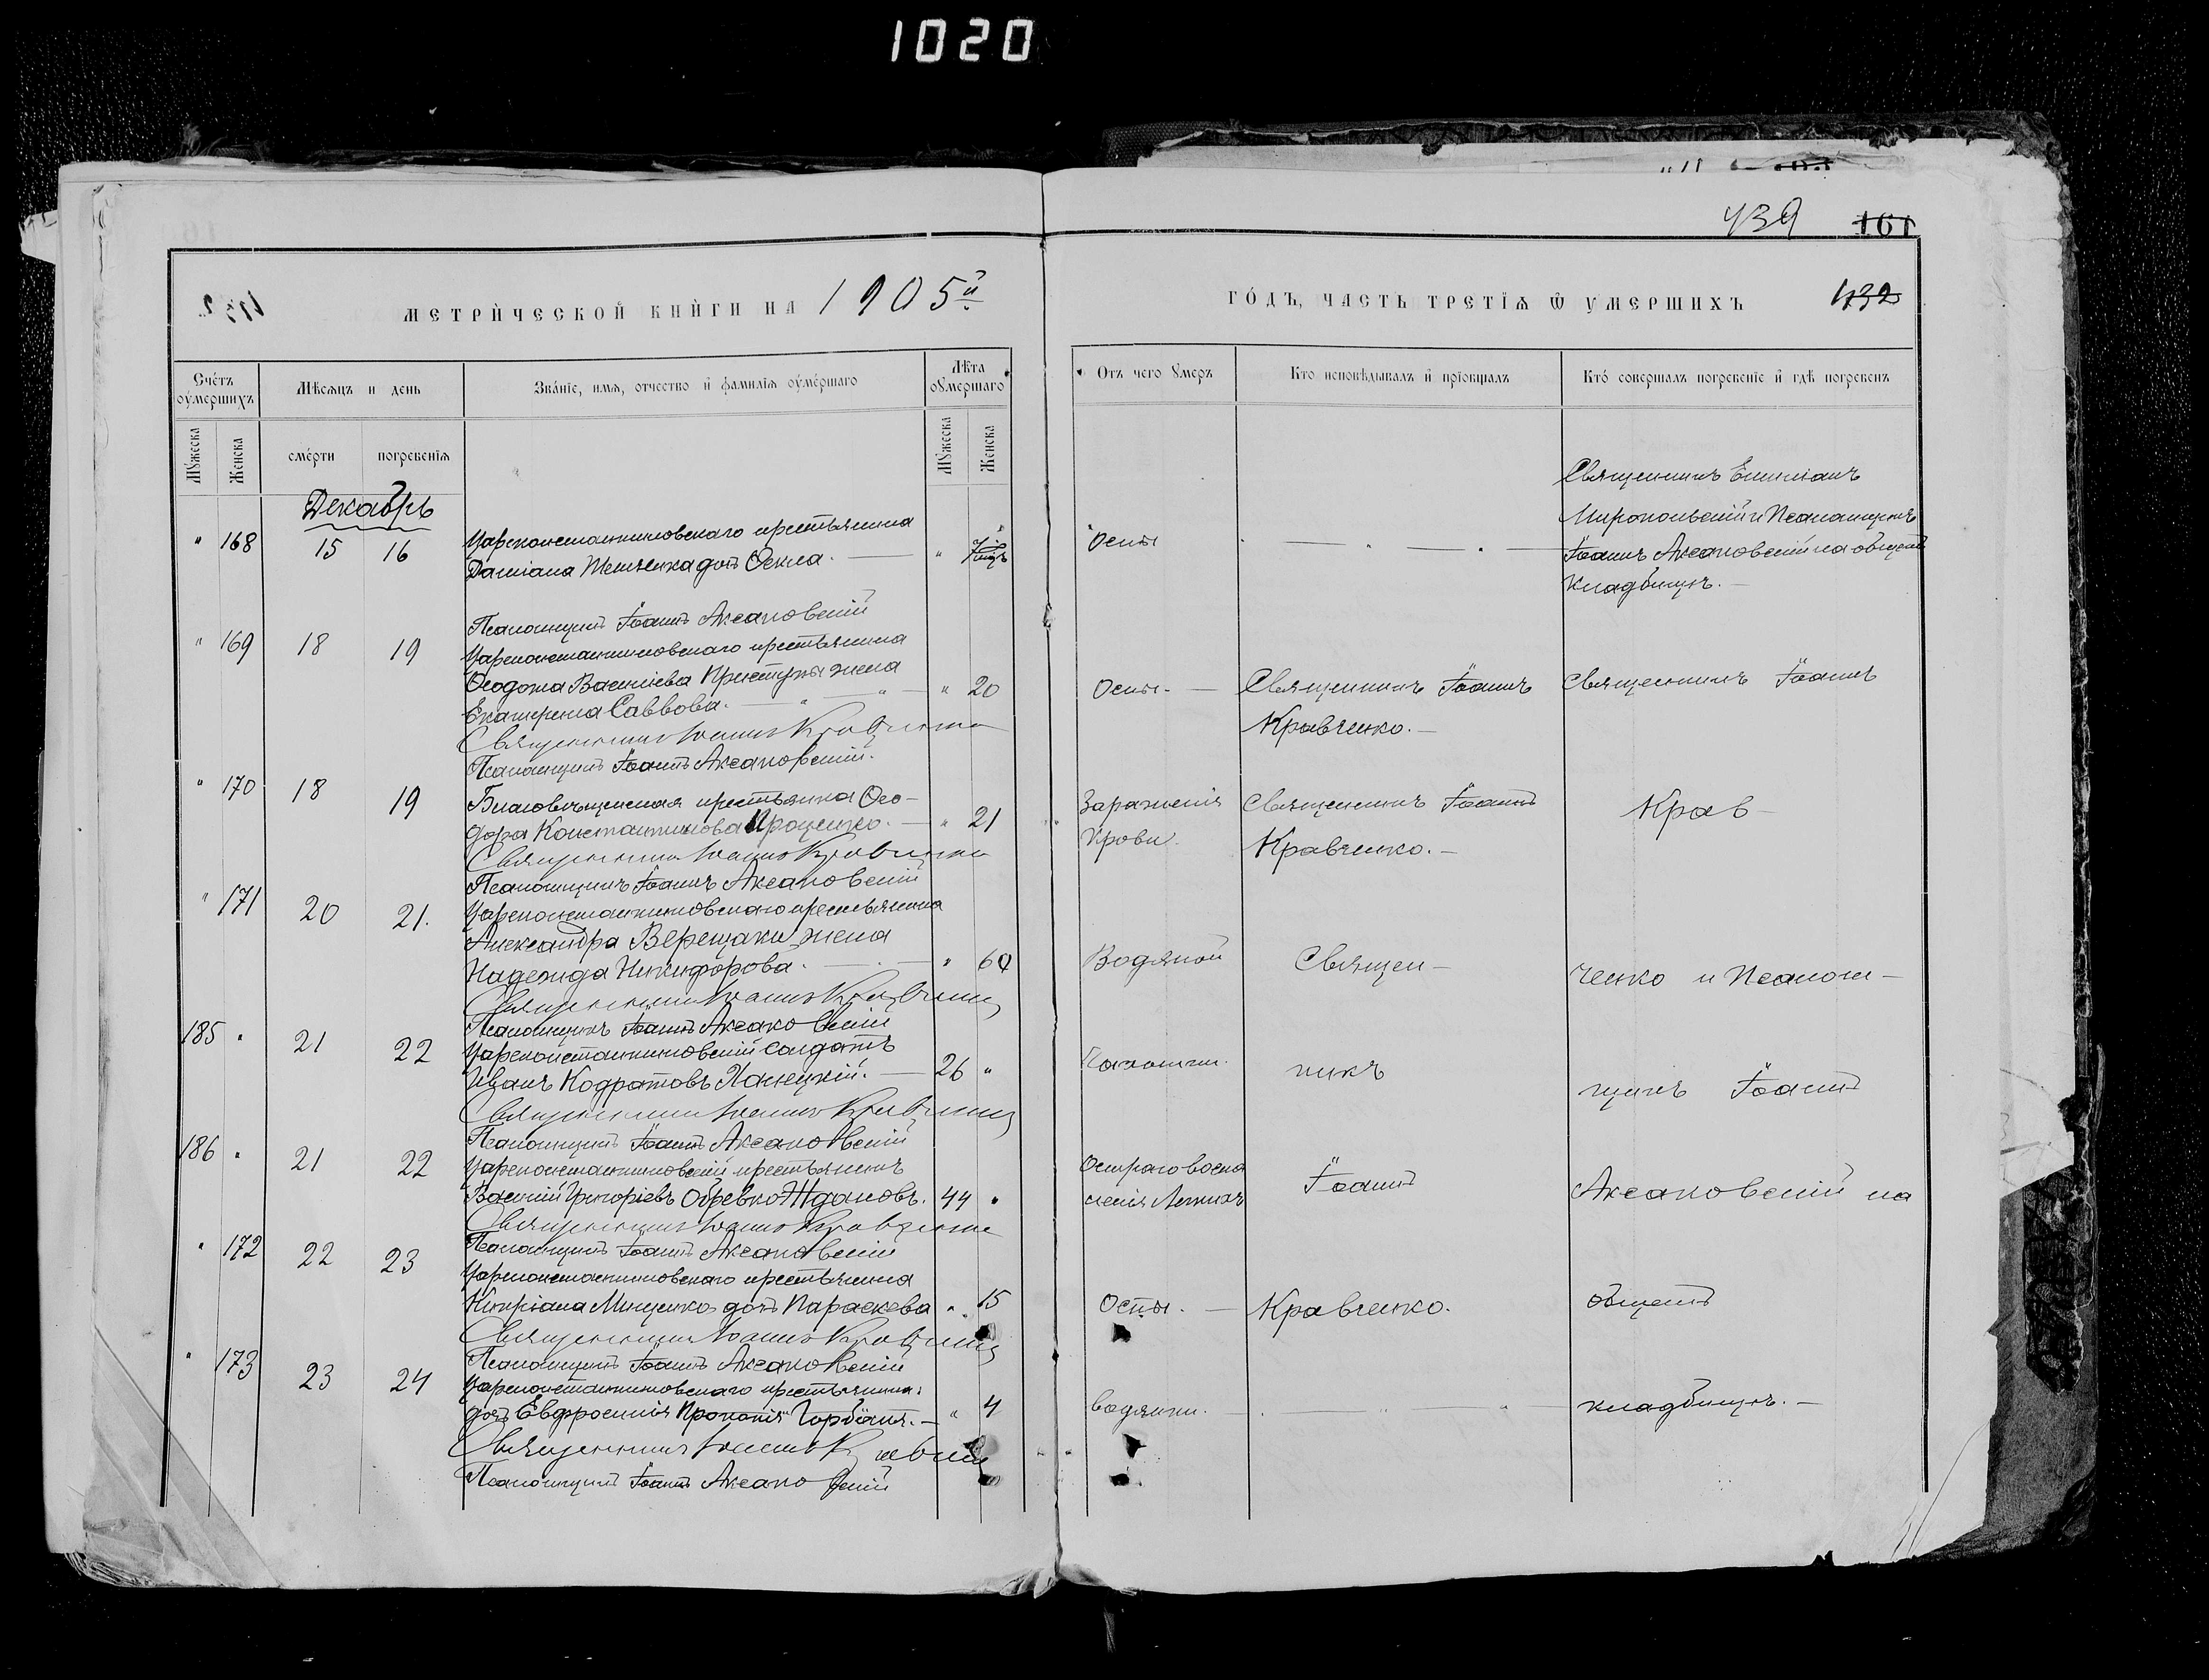 1020
439 161
МЕТРИ́ЧЕСКОЙ КНИ́ГИ НА 1905й
ГО́ДЪ, ЧАСТЬ ТРЕТІѦ Ѿ УМЕРШИХЪ 432
Сче́тъ оу́мершихъ
Мѣсяцъ и день
Зва́ніе, имя, отчество и фамилія оуме́ршаго
Лѣта оу́мершаго
Отъ чего умеръ
Кто исповѣдывалъ и пріобщалъ
Кто́ совершалъ погребеніе и гдѣ погребенъ
Мужеска
Женска
сме́рти
погребенія
Мужеска
Женска
Декабрь
" 168 15 16
Цареконстантиновскаго крестьянина
Даміана дочь Фекла. "
Оспы
Священникъ
Миропольскій и Псаломщикъ
Іоаннъ Аксаковскій на общемъ
Кладбищѣ.
Псаломщикъ Іоаннъ Аксаковскій
" 169 18 19
Цареконстантиновскаго крестьянина
Ѳеодота Васильева Приступы жена
Екатерина Саввова. " 20
Оспы.
Священникъ Іоаннъ
Кравченко.
Священникъ Іоаннъ
Священникъ Іоаннъ Кравченко
Псаломщикъ Іоаннъ Аксаковскій.
" 170 18 19
Благовѣщенская крестьянка Ѳео-
дора Константинова Проценко. " 21
Зараженія
Крови.
Священникъ Іоаннъ
Кравченко.
Крав-
Священникъ Іоаннъ Кравченко
Псаломщикъ Іоаннъ Аксаковскій
" 171 20 21.
Цареконстантиновскаго крестьянина
Александра Верещаки жена
Надежда Никифорова. " 60
Водяной
Священ-
ченко и Псалом-
Священникъ Іоаннъ Кравченко
Псаломщикъ Іоаннъ Аксаковскій
185 " 21 22
Цареконстантиновскій солдатъ
Иванъ Кодратовъ Ханецкій. 26 "
никъ
щикъ Іоаннъ
Священникъ Іоаннъ Кравченко
Псаломщикъ Іоаннъ Аксаковскій
186 " 21 22
Цареконстантиновскій крестьянинъ
Василій Григоріевъ Ждановъ. 44 "
Остраго воспа
ленія Легкихъ
Іоаннъ
Аксаковскій на
Священникъ Іоаннъ Кравченко
Псаломщикъ Іоаннъ Аксаковскій
" 172 22 23
Цареконстантиновскаго крестьянина
Кипріана Мищенко дочь Параскева " 15
Оспы.
Кравченко.
общемъ
Священникъ Іоаннъ Кравченко
Псаломщикъ Іоаннъ Аксаковскій
" 173 23 24
Цареконстантиновскаго крестьянина
дочь Евфросинія Прокопія Горбань. " 4
водянки.
кладбищѣ.
Священникъ Іоаннъ Кравченко
Псаломщикъ Іоаннъ Аксаковскій